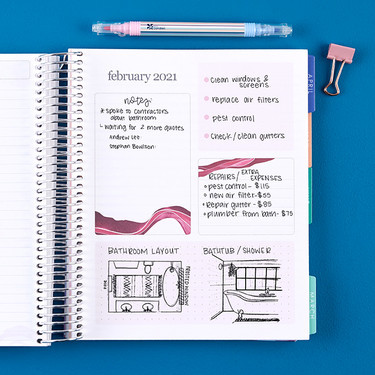 february 2021
notes:
* spoke to contractors
about bathroom
- waiting for 2 more quotes
Andrew Lee
Stephan Boulsen
clean windows &
screens
replace air filters
pest control
check/clean gutters
REPAIRS / EXTRA
EXPENSES
• pest control - $115
• new air filter - $55
• Repair gutter - $85
• plumber from bath - $75
BATHROOM LAYOUT
BATHTUB / SHOWER
APRIL